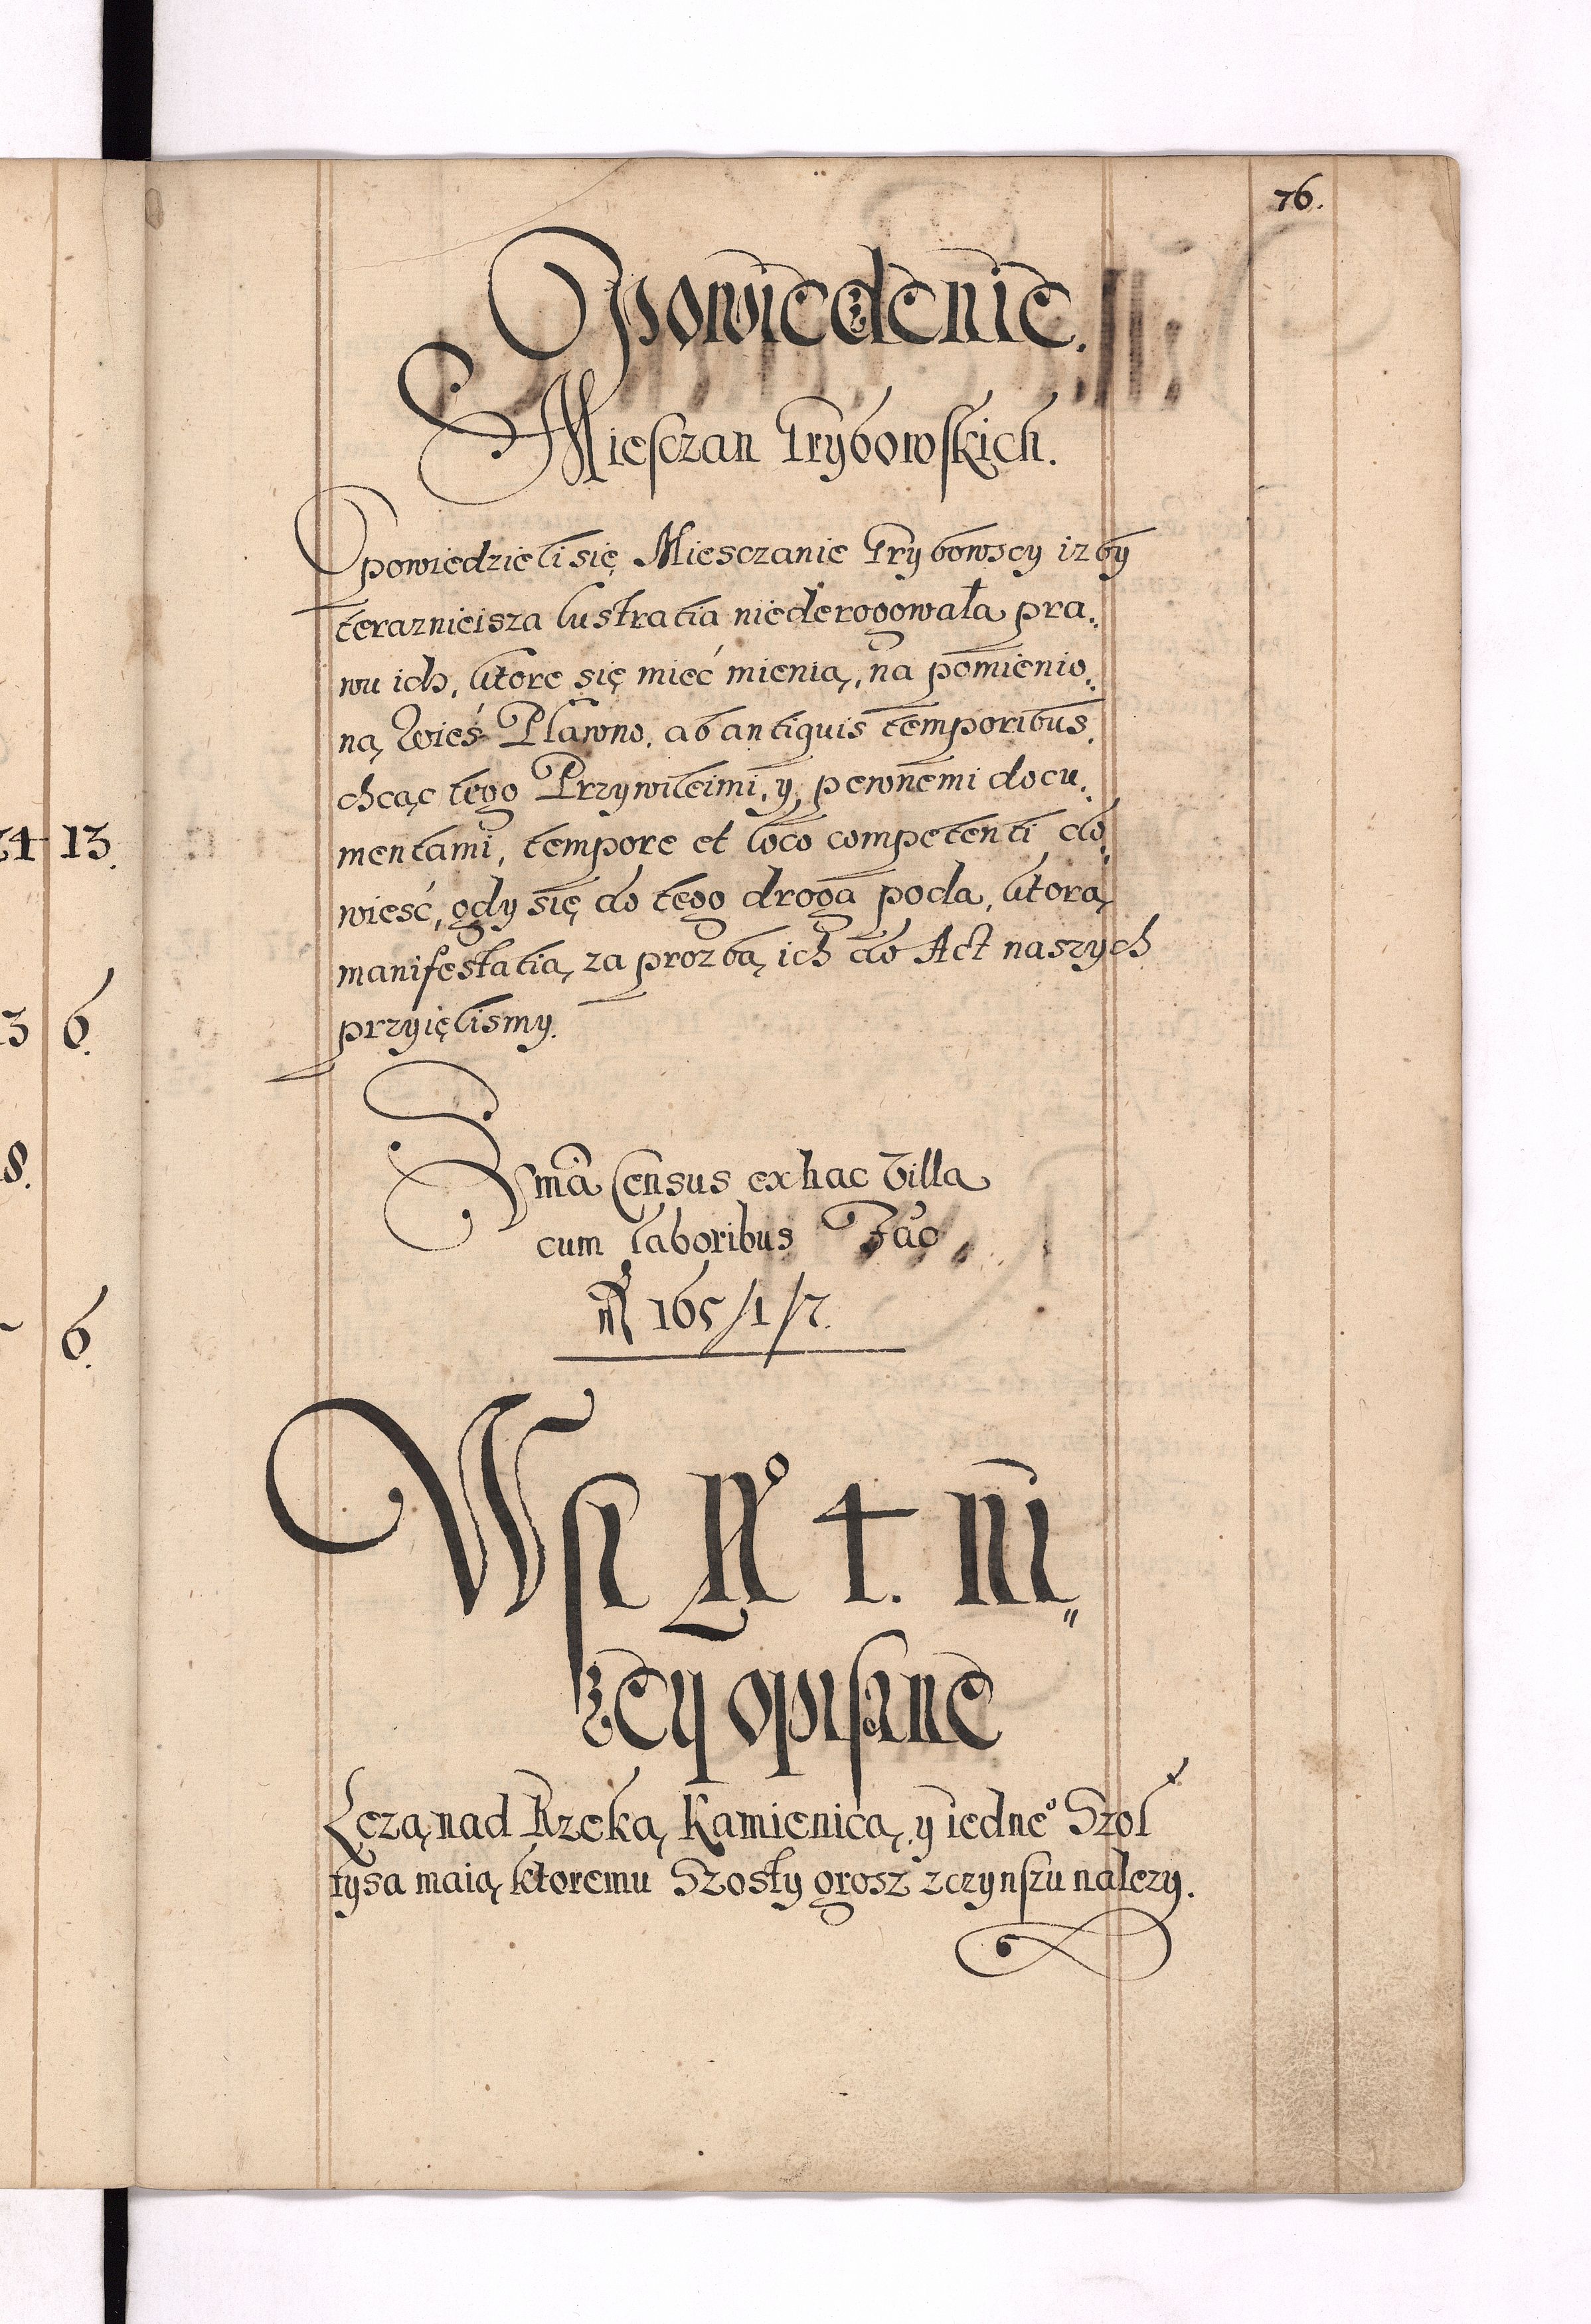 76.
Opowiedzenie.
Miesczan Grybowskich.
Opowiedzieli się Miesczanie Grybowscy izby
teraznieisza lustratia niederogowała pra„
wu ich, ktore się mieć mienią, na pomienio„
ną Wieś Pławno, ab antiquis temporibus,
chcąc tego Przywileimi, y pewnemi docu„
mentami, tempore et loco competenti do„
wieść, gdy się do tego droga poda, ktorą
manifestatią za prozbą ich do Act naszych
przyięlismy.
Sma Census ex hac Villa
cum laboribus Fac
165/1/7.
Wsi No 4. ni„
zey opisane
Lezą nad Rzeką Kamienicą, y iedneo Szoł
tysa maią ktoremu Szosty grosz z czynszu nalezy.
24 13.
3 6.
8.
6.